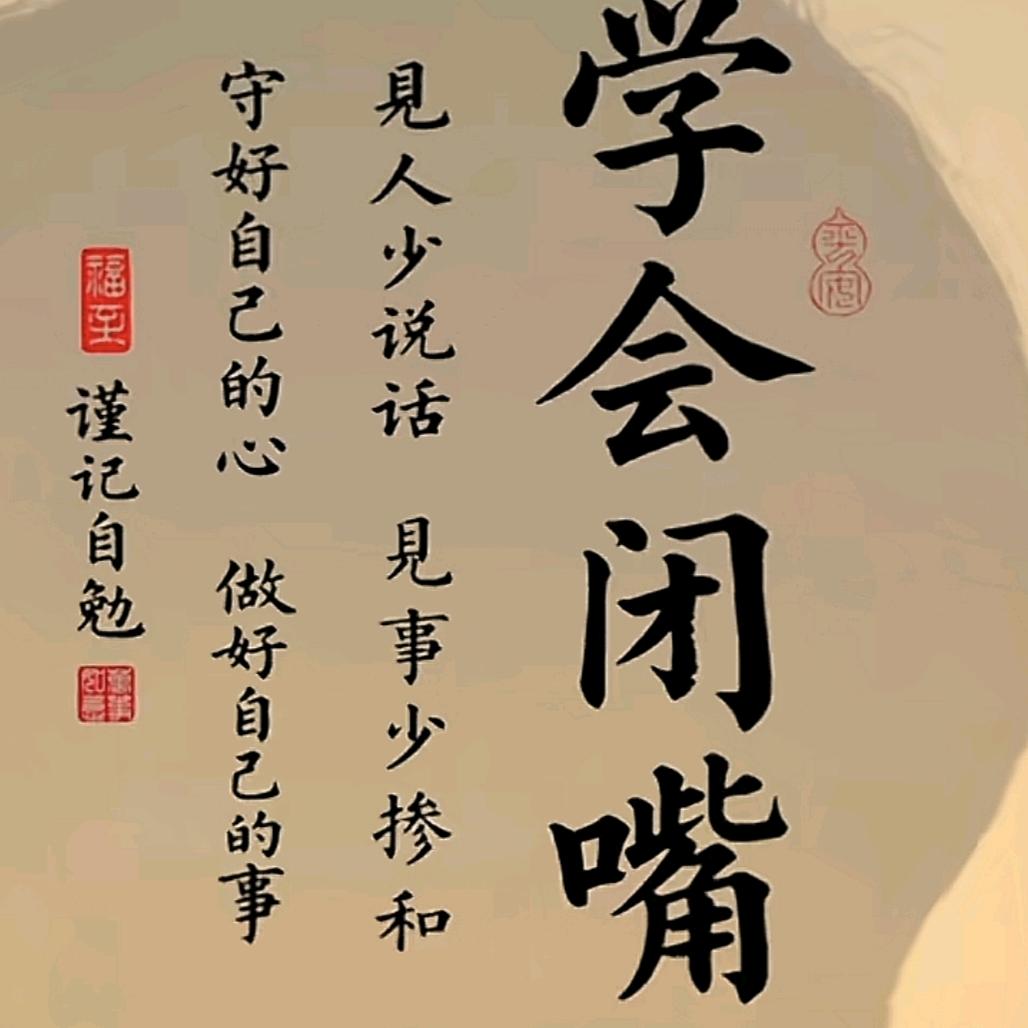 学会闭嘴
見人少说话 見事少掺和
守好自己的心 做好自己的事
福至
谨记自勉